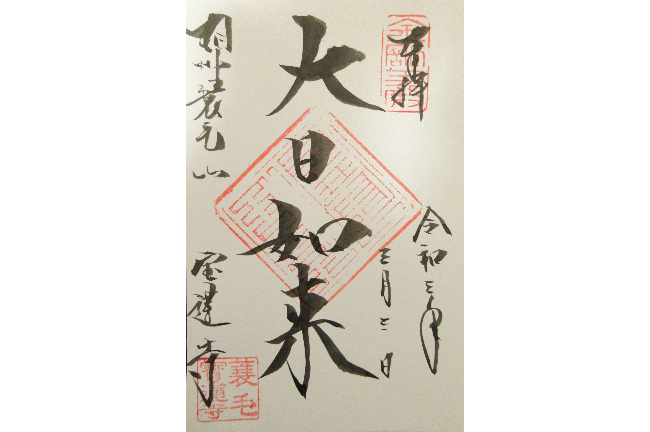 奉拝
令和三年
三月三日
大日如来
相州蓑毛山
宝蓮寺
蓑毛
寳蓮寺